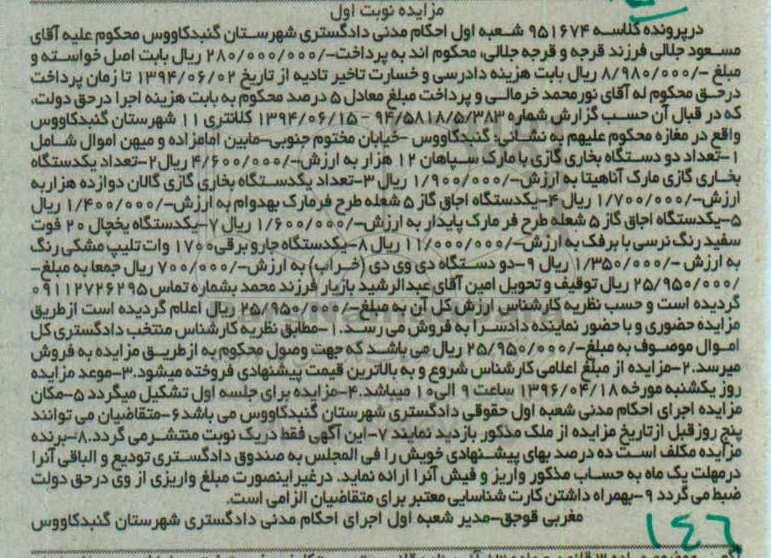 مزایده نوبت اول
درپرونده کلاسه ۹۵۱۶۷۴ شعبه اول احکام مدنی دادگستری شهرستان گنبدکاووس محکوم علیه آقای
مسعود جلالی فرزند قرجه و قرجه جلالی، محکوم اند به پرداخت-/۲۸۰/۰۰۰/۰۰۰ ریال بابت اصل خواسته و
مبلغ -/۸/۹۸۰/۰۰۰ ریال بابت هزینه دادرسی و خسارت تاخیر تادیه از تاریخ ۱۳۹۴/۰۶/۰۲ تا زمان پرداخت
درحق محکوم له آقای نورمحمد خرمالی و پرداخت مبلغ معادل ۵ درصد محکوم به بابت هزینه اجرا درحق دولت،
که در قبال آن حسب گزارش شماره ۹۴/۵۸۱۸/۵/۳۸۳ - ۱۳۹۴/۰۶/۱۵ کلانتری ۱۱ شهرستان گنبدکاووس
واقع در مغازه محکوم علیهم به نشانی: گنبدکاووس -خیابان مختوم جنوبی-مابین امامزاده و میهن اموال شامل
۱-تعداد دو دستگاه بخاری گازی با مارک سپاهان ۱۲ هزار به ارزش-/۴/۶۰۰/۰۰۰ ریال۲-تعداد یکدستگاه
بخاری گازی مارک آناهیتا به ارزش-/۱/۹۰۰/۰۰۰ ریال ۳-تعداد یکدستگاه بخاری گازی گالان دوازده هزاربه
ارزش-/۱/۷۰۰/۰۰۰ ریال ۴-یکدستگاه اجاق گاز ۵ شعله طرح فرمارک بهدوام به ارزش-/۱/۴۰۰/۰۰۰ ریال
۵-یکدستگاه اجاق گاز ۵ شعله طرح فر مارک پایدار به ارزش-/۱/۶۰۰/۰۰۰ ریال ۷-یکدستگاه یخچال ۲۰ فوت
سفید رنگ نرسی با برفک به ارزش-/۱۱/۰۰۰/۰۰۰ ریال ۸-یکدستگاه جارو برقی ۱۷۰۰ وات تلیپ مشکی رنگ
به ارزش -/۱/۳۵۰/۰۰۰ ریال ۹-دو دستگاه دی وی دی (خراب) به ارزش-/۷۰۰/۰۰۰ ریال جمعا به مبلغ-
/۲۵/۹۵۰/۰۰۰ ریال توقیف و تحویل امین آقای عبدالرشید بازیار فرزند محمد بشماره تماس ۰۹۱۱۲۷۲۶۲۹۵
گردیده است و حسب نظریه کارشناس ارزش کل آن به مبلغ-/۲۵/۹۵۰/۰۰۰ ریال اعلام گردیده است ازطریق
مزایده حضوری و با حضور نماینده دادسرا به فروش می رسد.۱-مطابق نظریه کارشناس منتخب دادگستری کل
اموال موصوف به مبلغ-/۲۵/۹۵۰/۰۰۰ ریال می باشد که جهت وصول محکوم به از طریق مزایده به فروش
میرسد.۲-مزایده از مبلغ اعلامی کارشناس شروع و به بالاترین قیمت پیشنهادی فروخته میشود.۳-موعد مزایده
روز یکشنبه مورخه ۱۳۹۶/۰۴/۱۸ ساعت ۹ الی۱۰ میباشد.۴-مزایده برای جلسه اول تشکیل میگردد ۵-مکان
مزایده اجرای احکام مدنی شعبه اول حقوقی دادگستری شهرستان گنبدکاووس می باشد۶-متقاضیان می توانند
پنج روزقبل ازتاریخ مزایده از ملک مذکور بازدید نمایند ۷-این آگهی فقط دریک نوبت منتشرمی گردد.۸-برنده
مزایده مکلف است ده درصد بهای پیشنهادی خویش را فی المجلس به صندوق دادگستری تودیع و الباقی آنرا
درمهلت یک ماه به حساب مذکور واریز و فیش آنرا ارائه نماید. درغیراینصورت مبلغ واریزی از وی درحق دولت
ضبط می گردد ۹-بهمراه داشتن کارت شناسایی معتبر برای متقاضیان الزامی است.
مغربی قوجق-مدیر شعبه اول اجرای احکام مدنی دادگستری شهرستان گنبدکاووس
۱۴۶